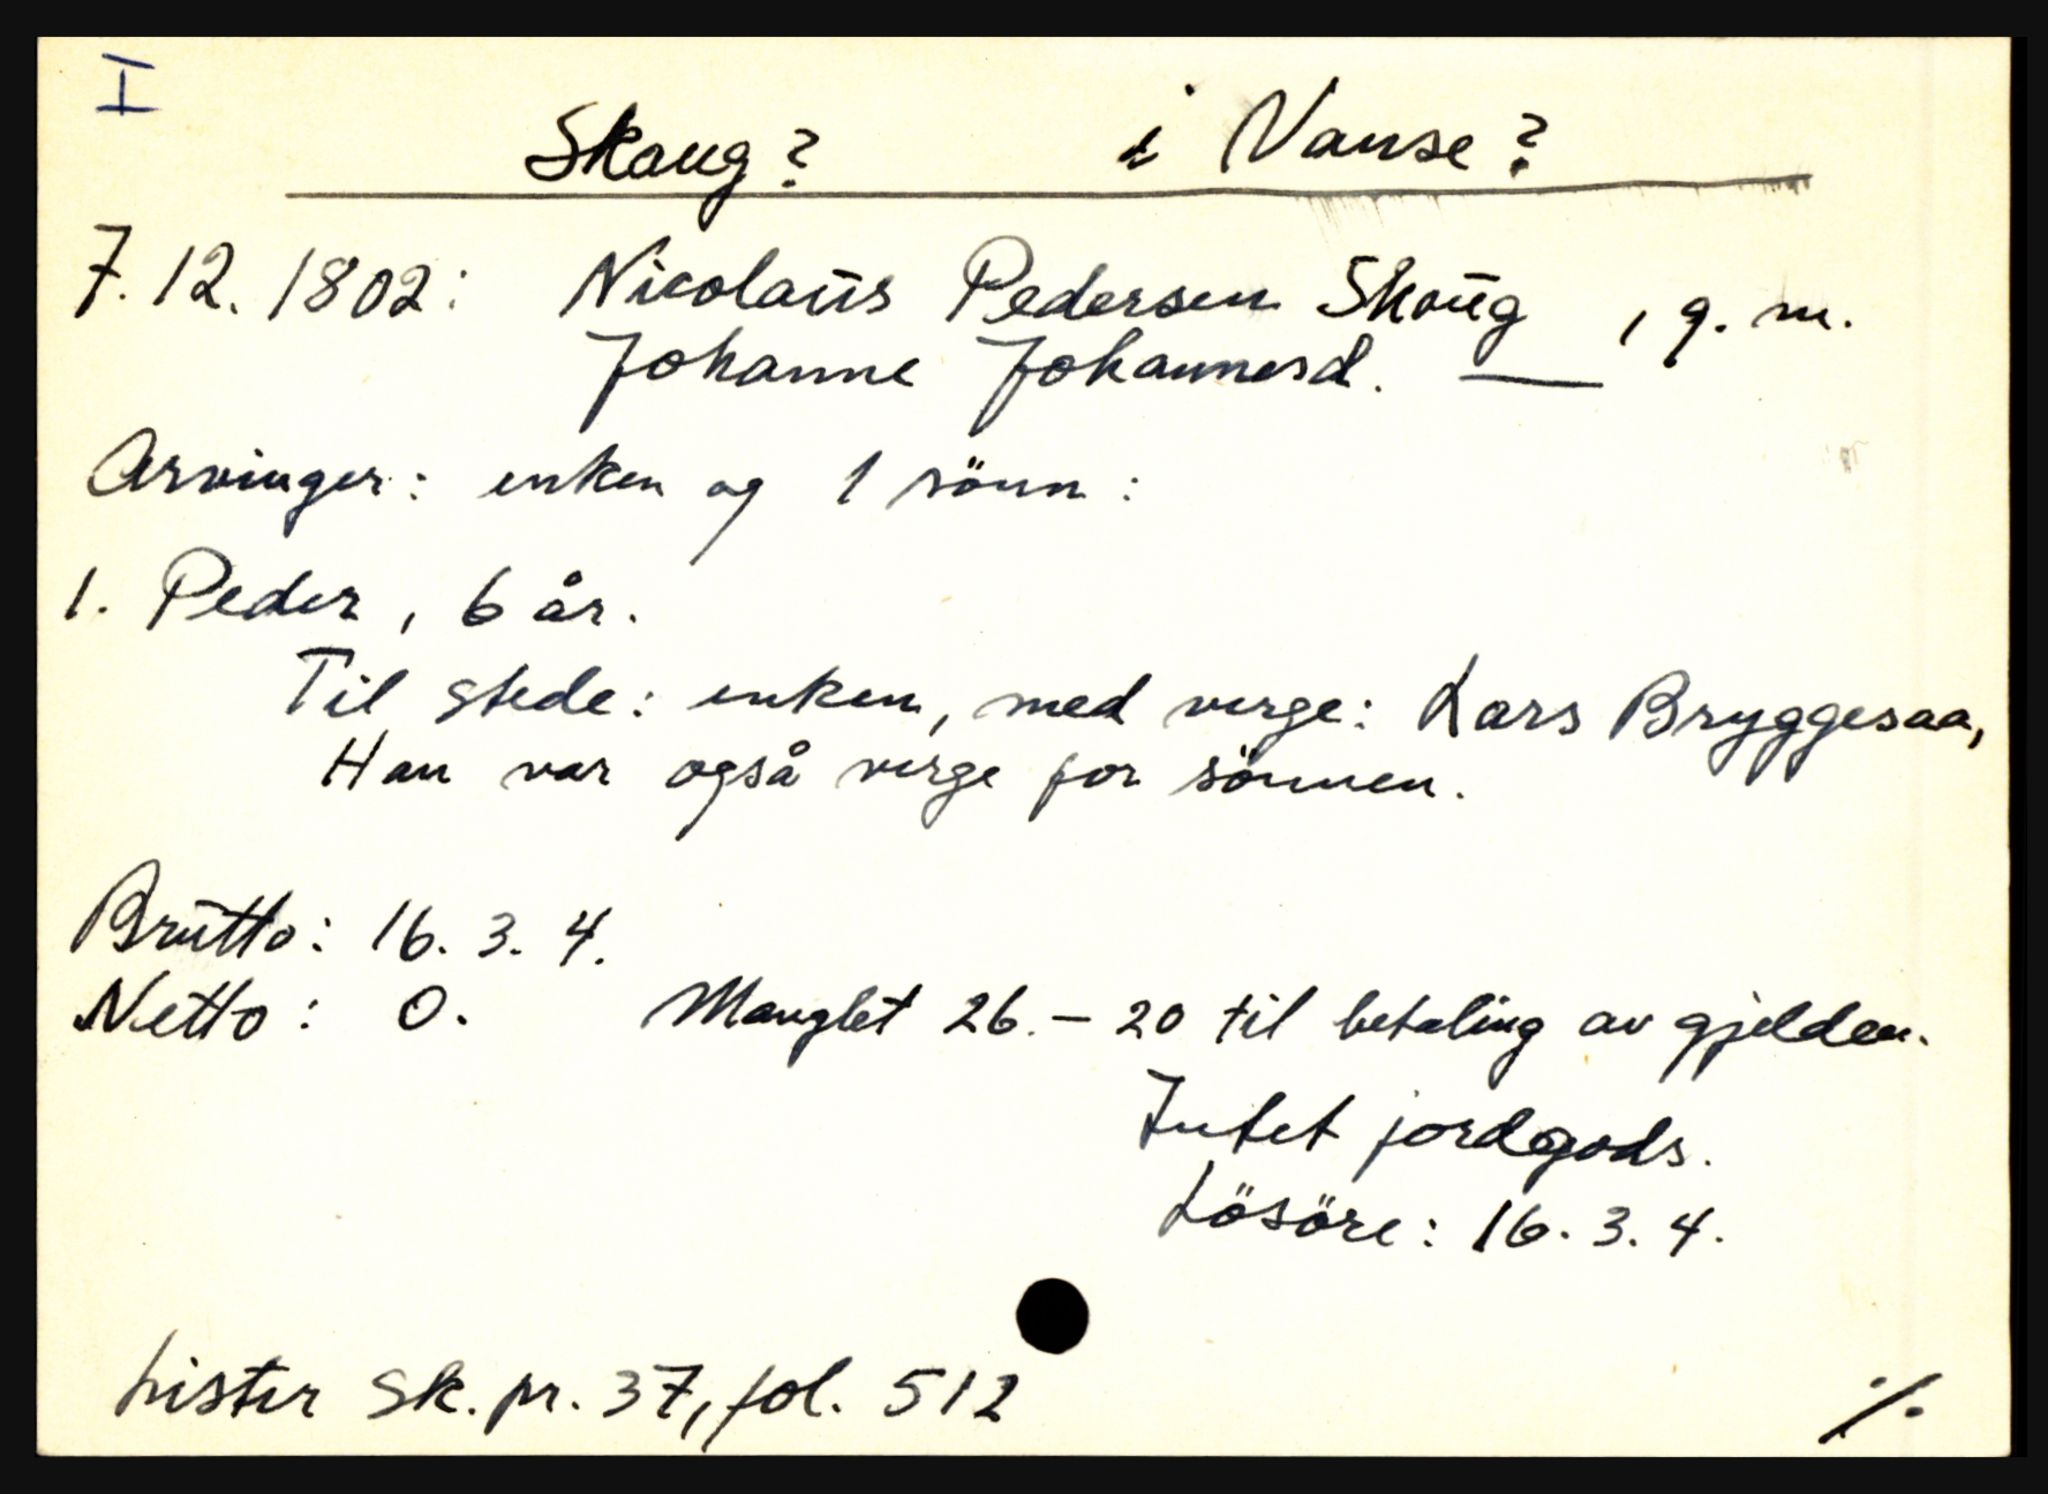 I
Skaug? i Vanse?
7.12.1802: Nicolaus Pedersen Skoug, g. m.
Johanne Johannesd. —
Arvinger: enken og 1 sönn:
1. Peder, 6 år.
Til stede: enken, med verge: Lars Bryggesaa,
Han var også verge for sönnen.
Brutto: 16. 3. 4.
Netto: 0. Manglet 26. – 20 til betaling av gjelden.
Intet jordgods.
Lösöre: 16. 3. 4.
Lister sk. pr. 37, fol. 512
·/·